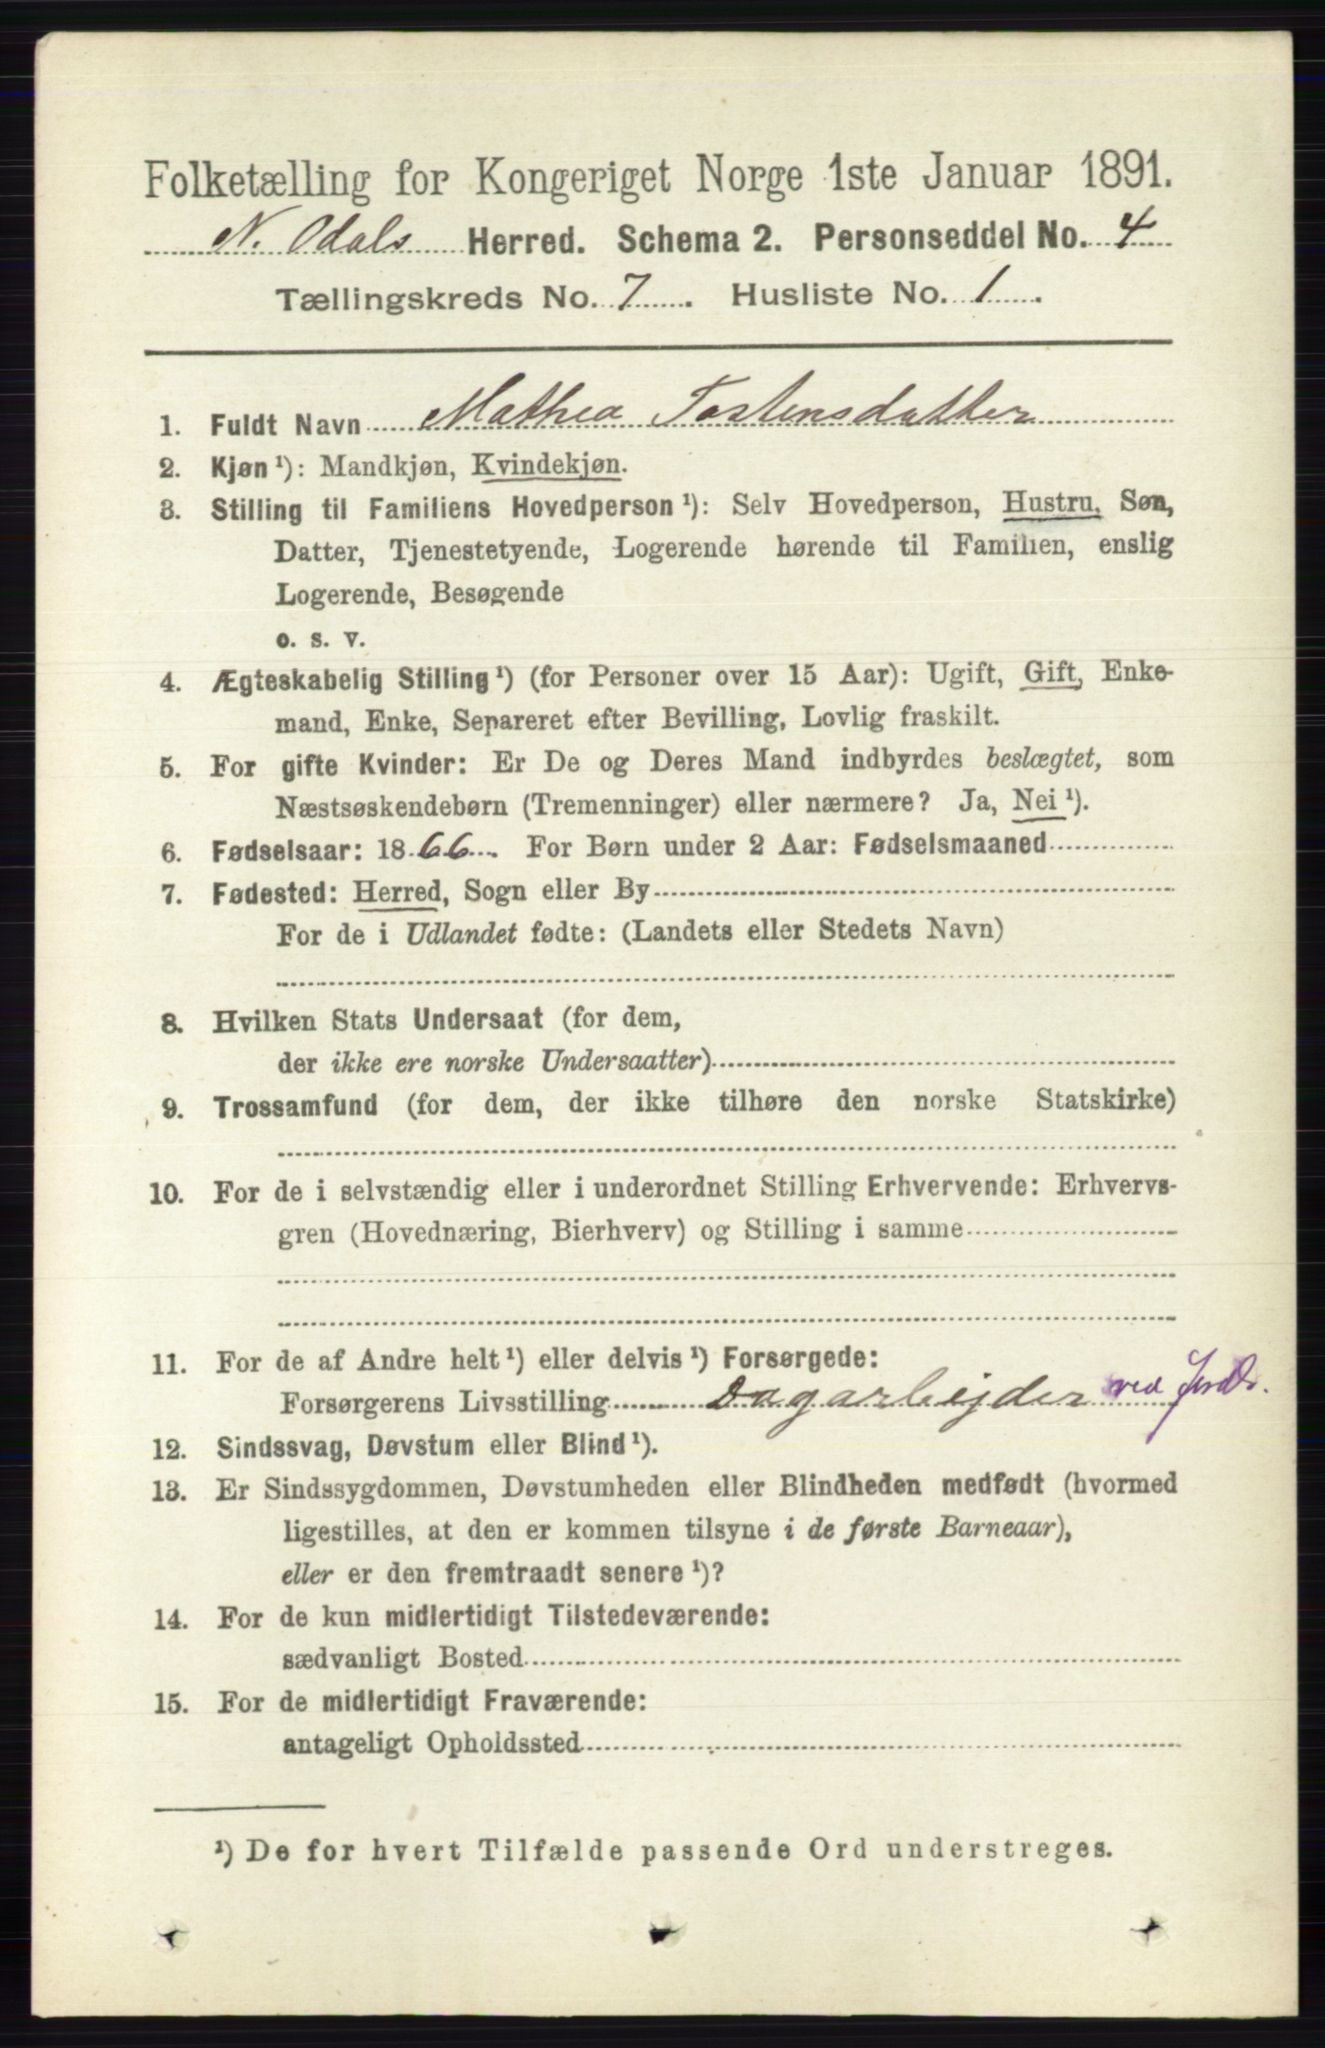 Folketælling for Kongeriget Norge 1ste Januar 1891.
N. Odals Herred. Schema 2. Personseddel No. 4
Tællingskreds No. 7. Husliste No. 1.
1. Fuldt Navn Mathea Tostensdatter
2. Kjøn ¹): Mandkjøn, Kvindekjøn.
3. Stilling til Familiens Hovedperson ¹): Selv Hovedperson, Hustru, Søn,
Datter, Tjenestetyende, Logerende hørende til Familien, enslig
Logerende, Besøgende
o. s. v.
4. Ægteskabelig Stilling ¹) (for Personer over 15 Aar): Ugift, Gift, Enke-
mand, Enke, Separeret efter Bevilling, Lovlig fraskilt.
5. For gifte Kvinder: Er De og Deres Mand indbyrdes beslægtet, som
Næstsøskendebørn (Tremenninger) eller nærmere? Ja, Nei ¹).
6. Fødselsaar: 1866. For Børn under 2 Aar: Fødselsmaaned
7. Fødested: Herred, Sogn eller By
For de i Udlandet fødte: (Landets eller Stedets Navn)
8. Hvilken Stats Undersaat (for dem,
der ikke ere norske Undersaatter)
9. Trossamfund (for dem, der ikke tilhøre den norske Statskirke)
10. For de i selvstændig eller i underordnet Stilling Erhvervende: Erhvervs-
gren (Hovednæring, Bierhverv) og Stilling i samme
11. For de af Andre helt ¹) eller delvis ¹) Forsørgede:
Forsørgerens Livsstilling Dagarbejder ved Jordb.
12. Sindssvag, Døvstum eller Blind ¹).
13. Er Sindssygdommen, Døvstumheden eller Blindheden medfødt (hvormed
ligestilles, at den er kommen tilsyne i de første Barneaar),
eller er den fremtraadt senere ¹)?
14. For de kun midlertidigt Tilstedeværende:
sædvanligt Bosted
15. For de midlertidigt Fraværende:
antageligt Opholdssted
¹) De for hvert Tilfælde passende Ord understreges.